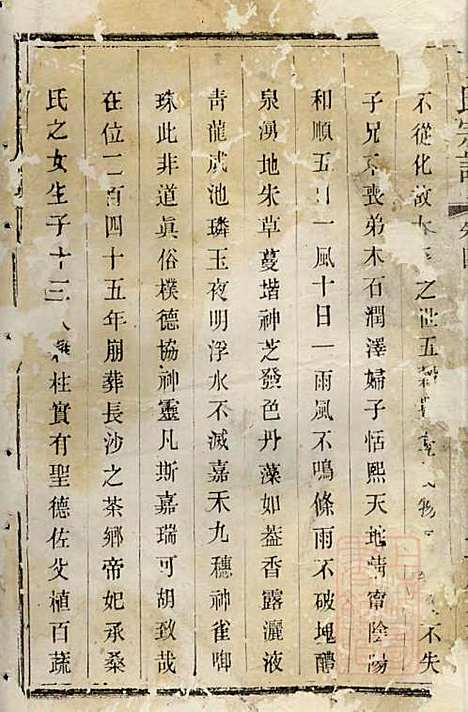 氏宗譜
不從化故之世五不失
子兄不喪弟木石潤澤婦子恬熙天地清寧陰陽
和順五日一風十日一雨風不鳴條雨不破塊醴
泉湧地朱草蔓堦神芝發色丹藻如葢香露灑液
青龍成池璘玉夜明浮水不滅嘉禾九穗神雀啣
珠此非道眞俗樸德協神靈凡斯嘉瑞可胡致哉
在位一百四十五年崩葬長沙之茶鄉帝妃承桑
氏之女生子十三人柱實有聖德佐父植百蔬